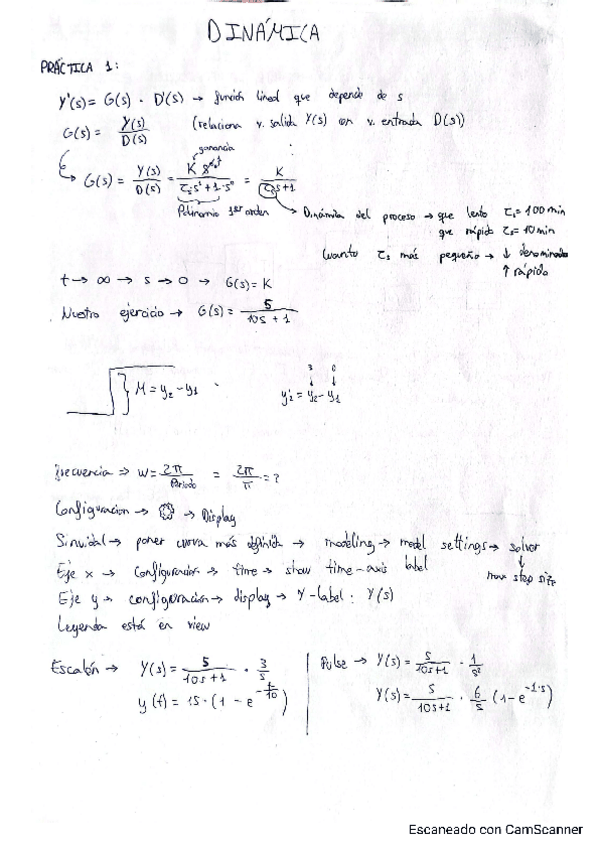 DINÁMICA
PRÁCTICA 1:
Y'(s) = G(s) · D'(s) → función lineal que depende de s
G(s) = Y(s) / D(s) (relaciona v. salida Y(s) con v. entrada D(s))
ganancia
G(s) = Y(s) / D(s) = K / τs s¹ + 1·s⁰ = K / τs s+1
Polinomio 1er orden → Dinámica del proceso → que lento τs = 100 min
que rápido τs = 10 min
Cuanto τs más pequeño → ↓ denominador
↑ rápido
t → ∞ → s → 0 → G(s) = K
Nuestro ejercicio → G(s) = 5 / 10s + 1
3 0
M = y2 - y1 y'2 = y2 - y1
frecuencia ⇒ W = 2π / Periodo = 2π / π = ?
Configuración → → Display
Sinuidal → poner curva más definida → modeling → model settings → solver
↓
max step size
Eje x → configuración → time → show time-axis label
Eje y → configuración → display → Y-label: Y(s)
Leyenda está en view
Escalón → Y(s) = 5 / 10s + 1 · 3 / s
y(t) = 15·(1 - e^-t/10)
Pulse → Y(s) = 5 / 10s+1 · 1 / s²
Y(s) = 5 / 10s+1 · 6 / s (1 - e^-1·s)
Escaneado con CamScanner